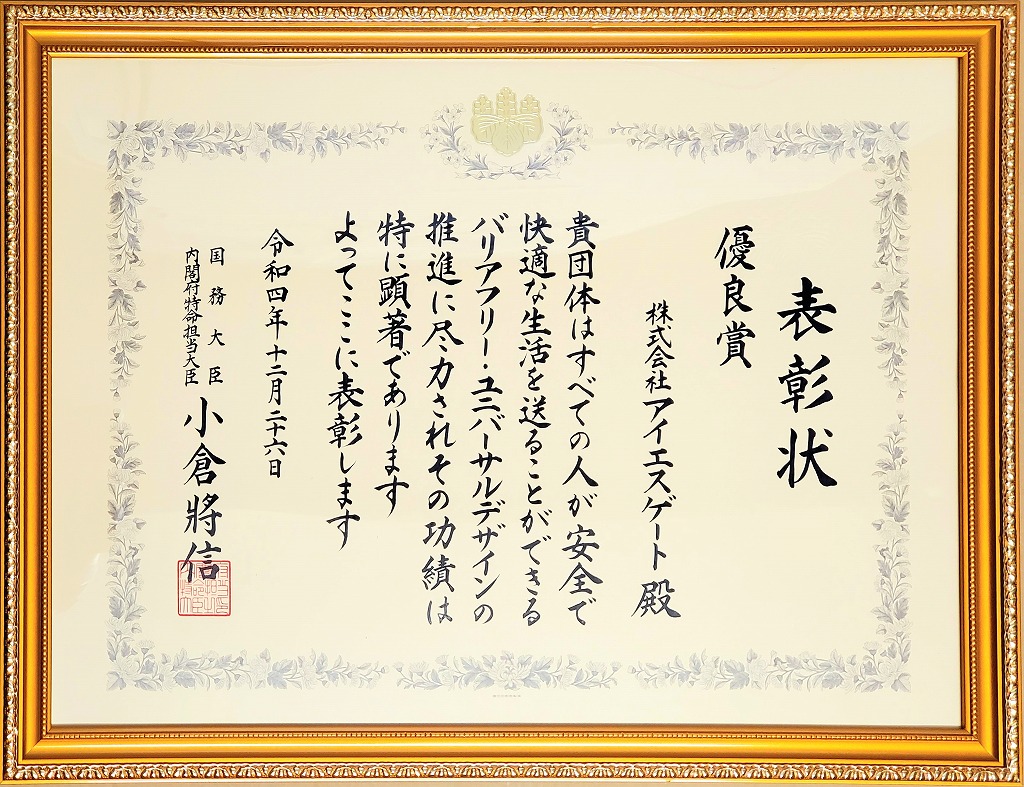 表彰状
優良賞
株式会社アイエスゲート 殿
貴団体はすべての人が安全で
快適な生活を送ることができる
バリアフリー・ユニバーサルデザインの
推進に尽力されその功績は
特に顕著であります
よってここに表彰します
令和四年十二月二十六日
国務大臣
内閣府特命担当大臣
小倉將信